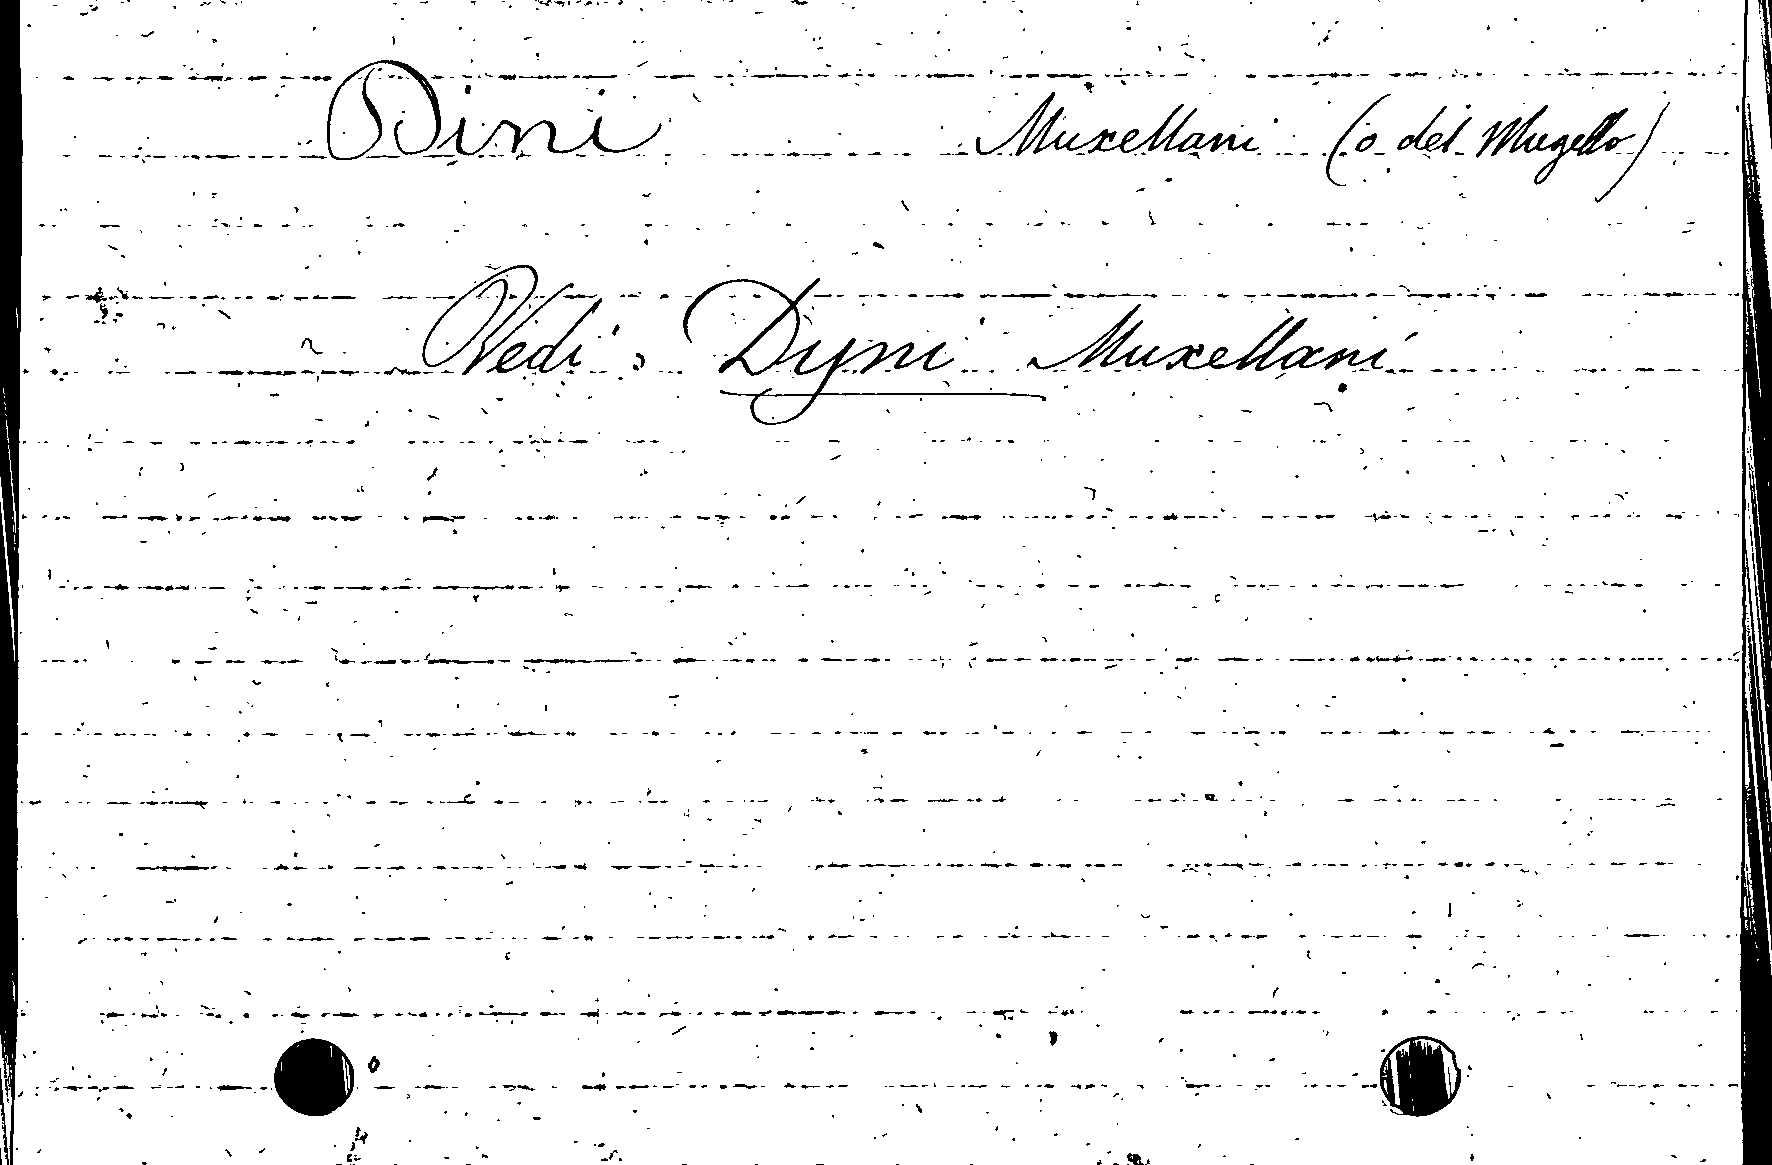 Dini Muxellani (o del Mugello)
Vedi: Dyni Muxellani